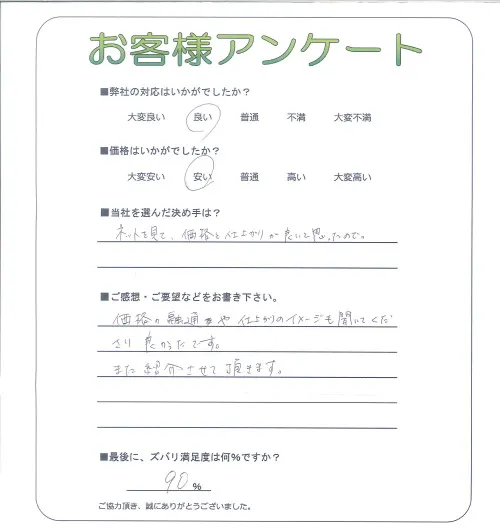 お客様アンケート
■弊社の対応はいかがでしたか？
大変良い 良い 普通 不満 大変不満
■価格はいかがでしたか？
大変安い 安い 普通 高い 大変高い
■当社を選んだ決め手は？
ネットを見て、価格と仕上がりが良いと思ったので。
■ご感想・ご要望などをお書き下さい。
価格の融通や仕上がりのイメージも聞いてくだ
さり良かったです。
また紹介させて頂きます。
■最後に、ズバリ満足度は何%ですか？
90 %
ご協力頂き、誠にありがとうございました。